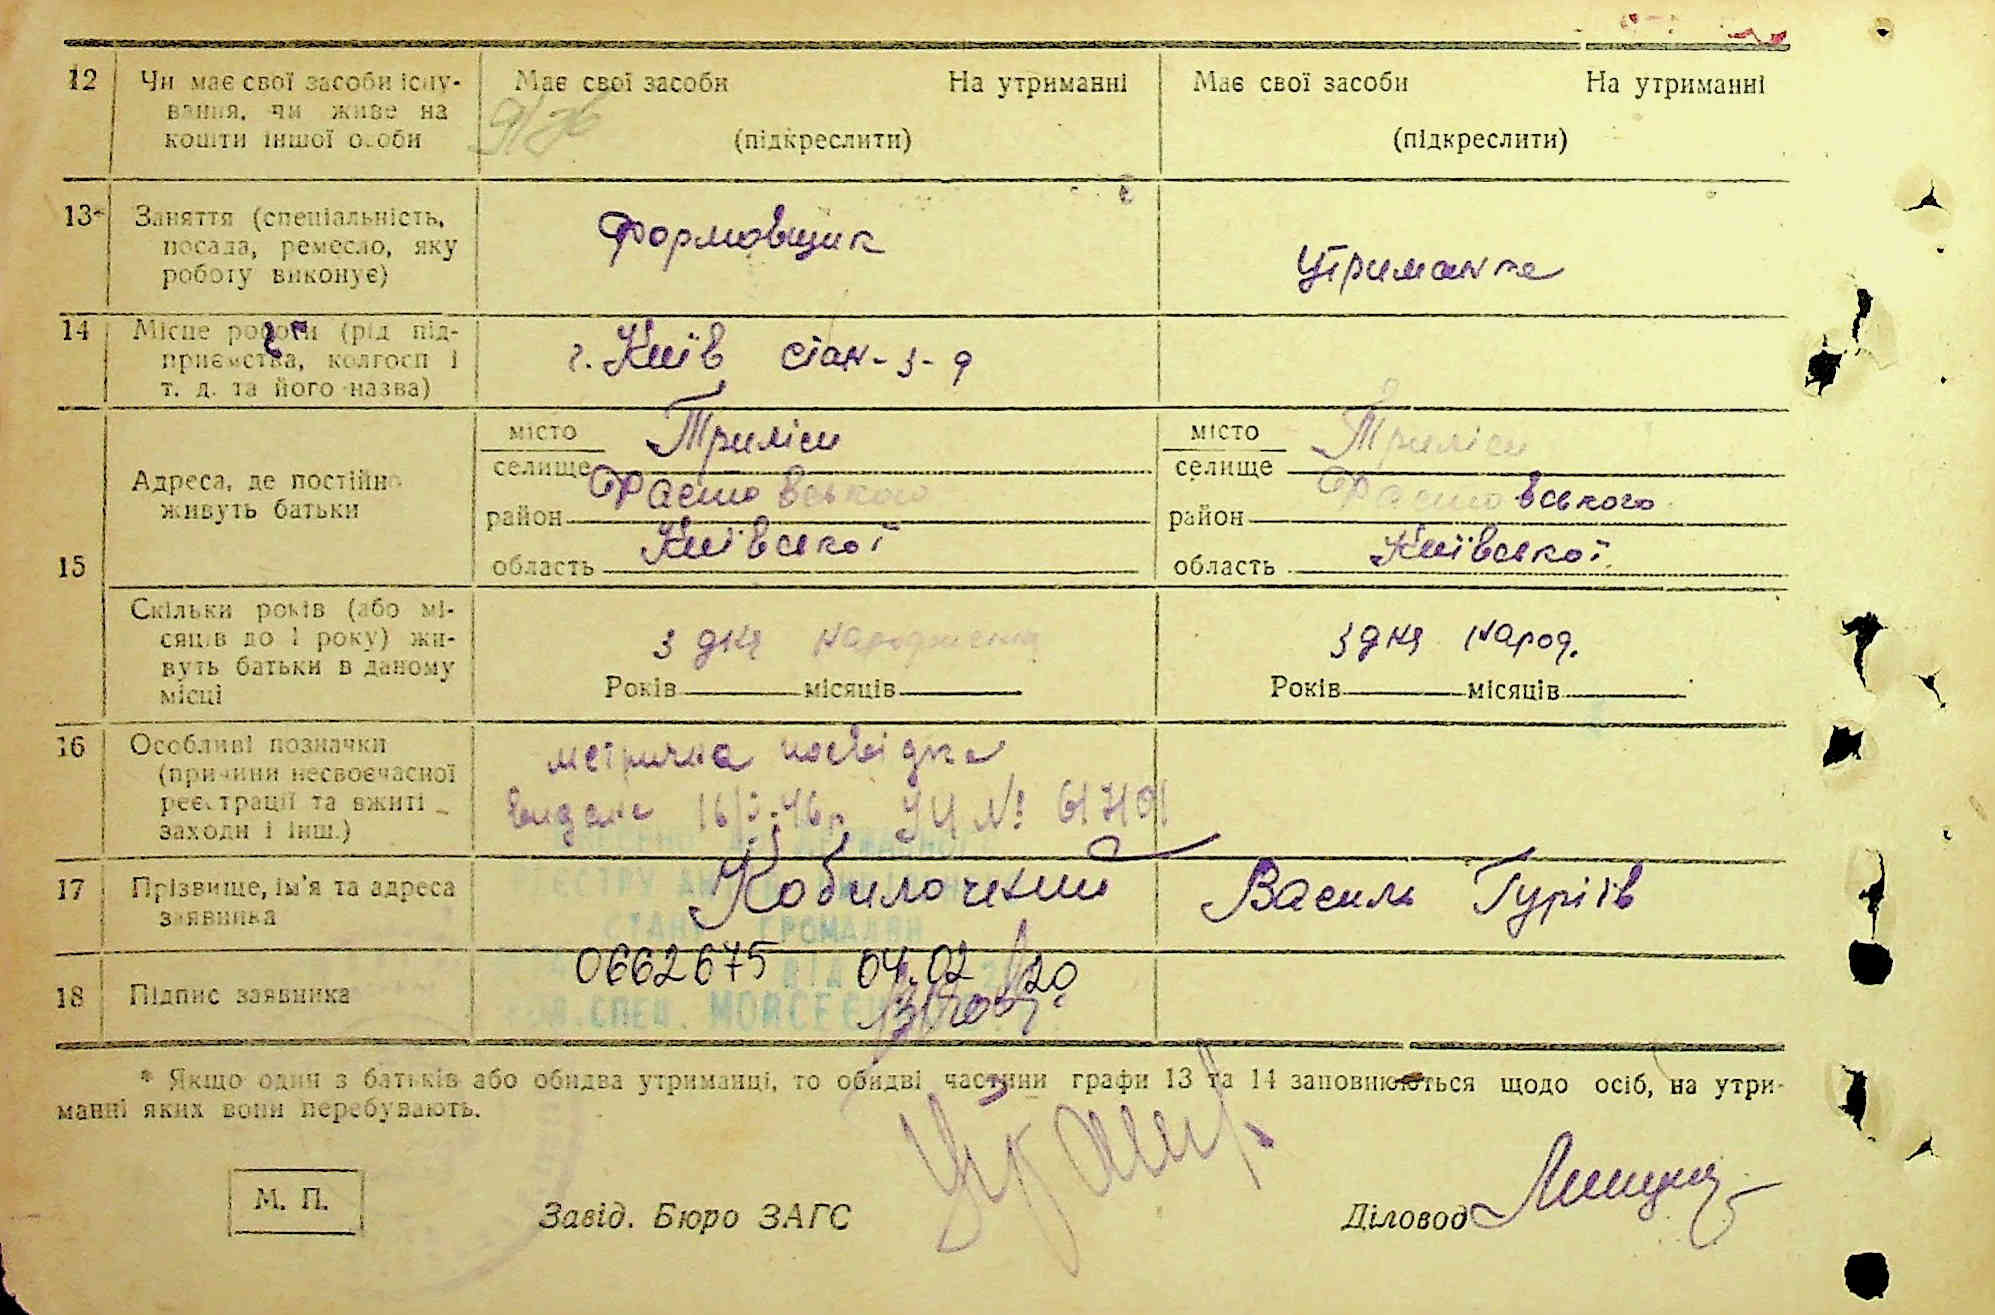 12 Чи має свої засоби існу-
вання, чи живе на
кошти іншої особи
Має свої засоби На утриманні
(підкреслити)
Має свої засоби На утриманні
(підкреслити)
13* Заняття (спеціальність,
посада, ремесло, яку
роботу виконує)
Формовщик
Утриманка
14 Місце роботи (рід під-
приємства, колгосп і
т. д. та його назва)
г. Київ стан-з-д
15
Адреса, де постійно
живуть батьки
місто
селище Триліси
район Фастовського
область Київської
місто
селище Триліси
район Фастовського
область Київської
Скільки років (або мі-
сяців до 1 року) жи-
вуть батьки в даному
місці
з дня народження
Років місяців
з дня народ.
Років місяців
16 Особливі позначки
(причини несвоєчасної
реєстрації та вжиті
заходи і інш.)
метрична посвідка
видана 46р УЦ № 617101
17 Прізвище, ім'я та адреса
заявника
Кобилочений Василь Гуріїв
РЕЄСТРУ АКТІВ
СТАНУ ГРОМАДЯН
18 Підпис заявника
0662675 04.02 20
СПЕЦ. МОЙСЕЄ
* Якщо один з батьків або обидва утриманці, то обидві частини графи 13 та 14 заповнюються щодо осіб, на утри-
манні яких вони перебувають.
М. П.
Завід. Бюро ЗАГС
Діловод